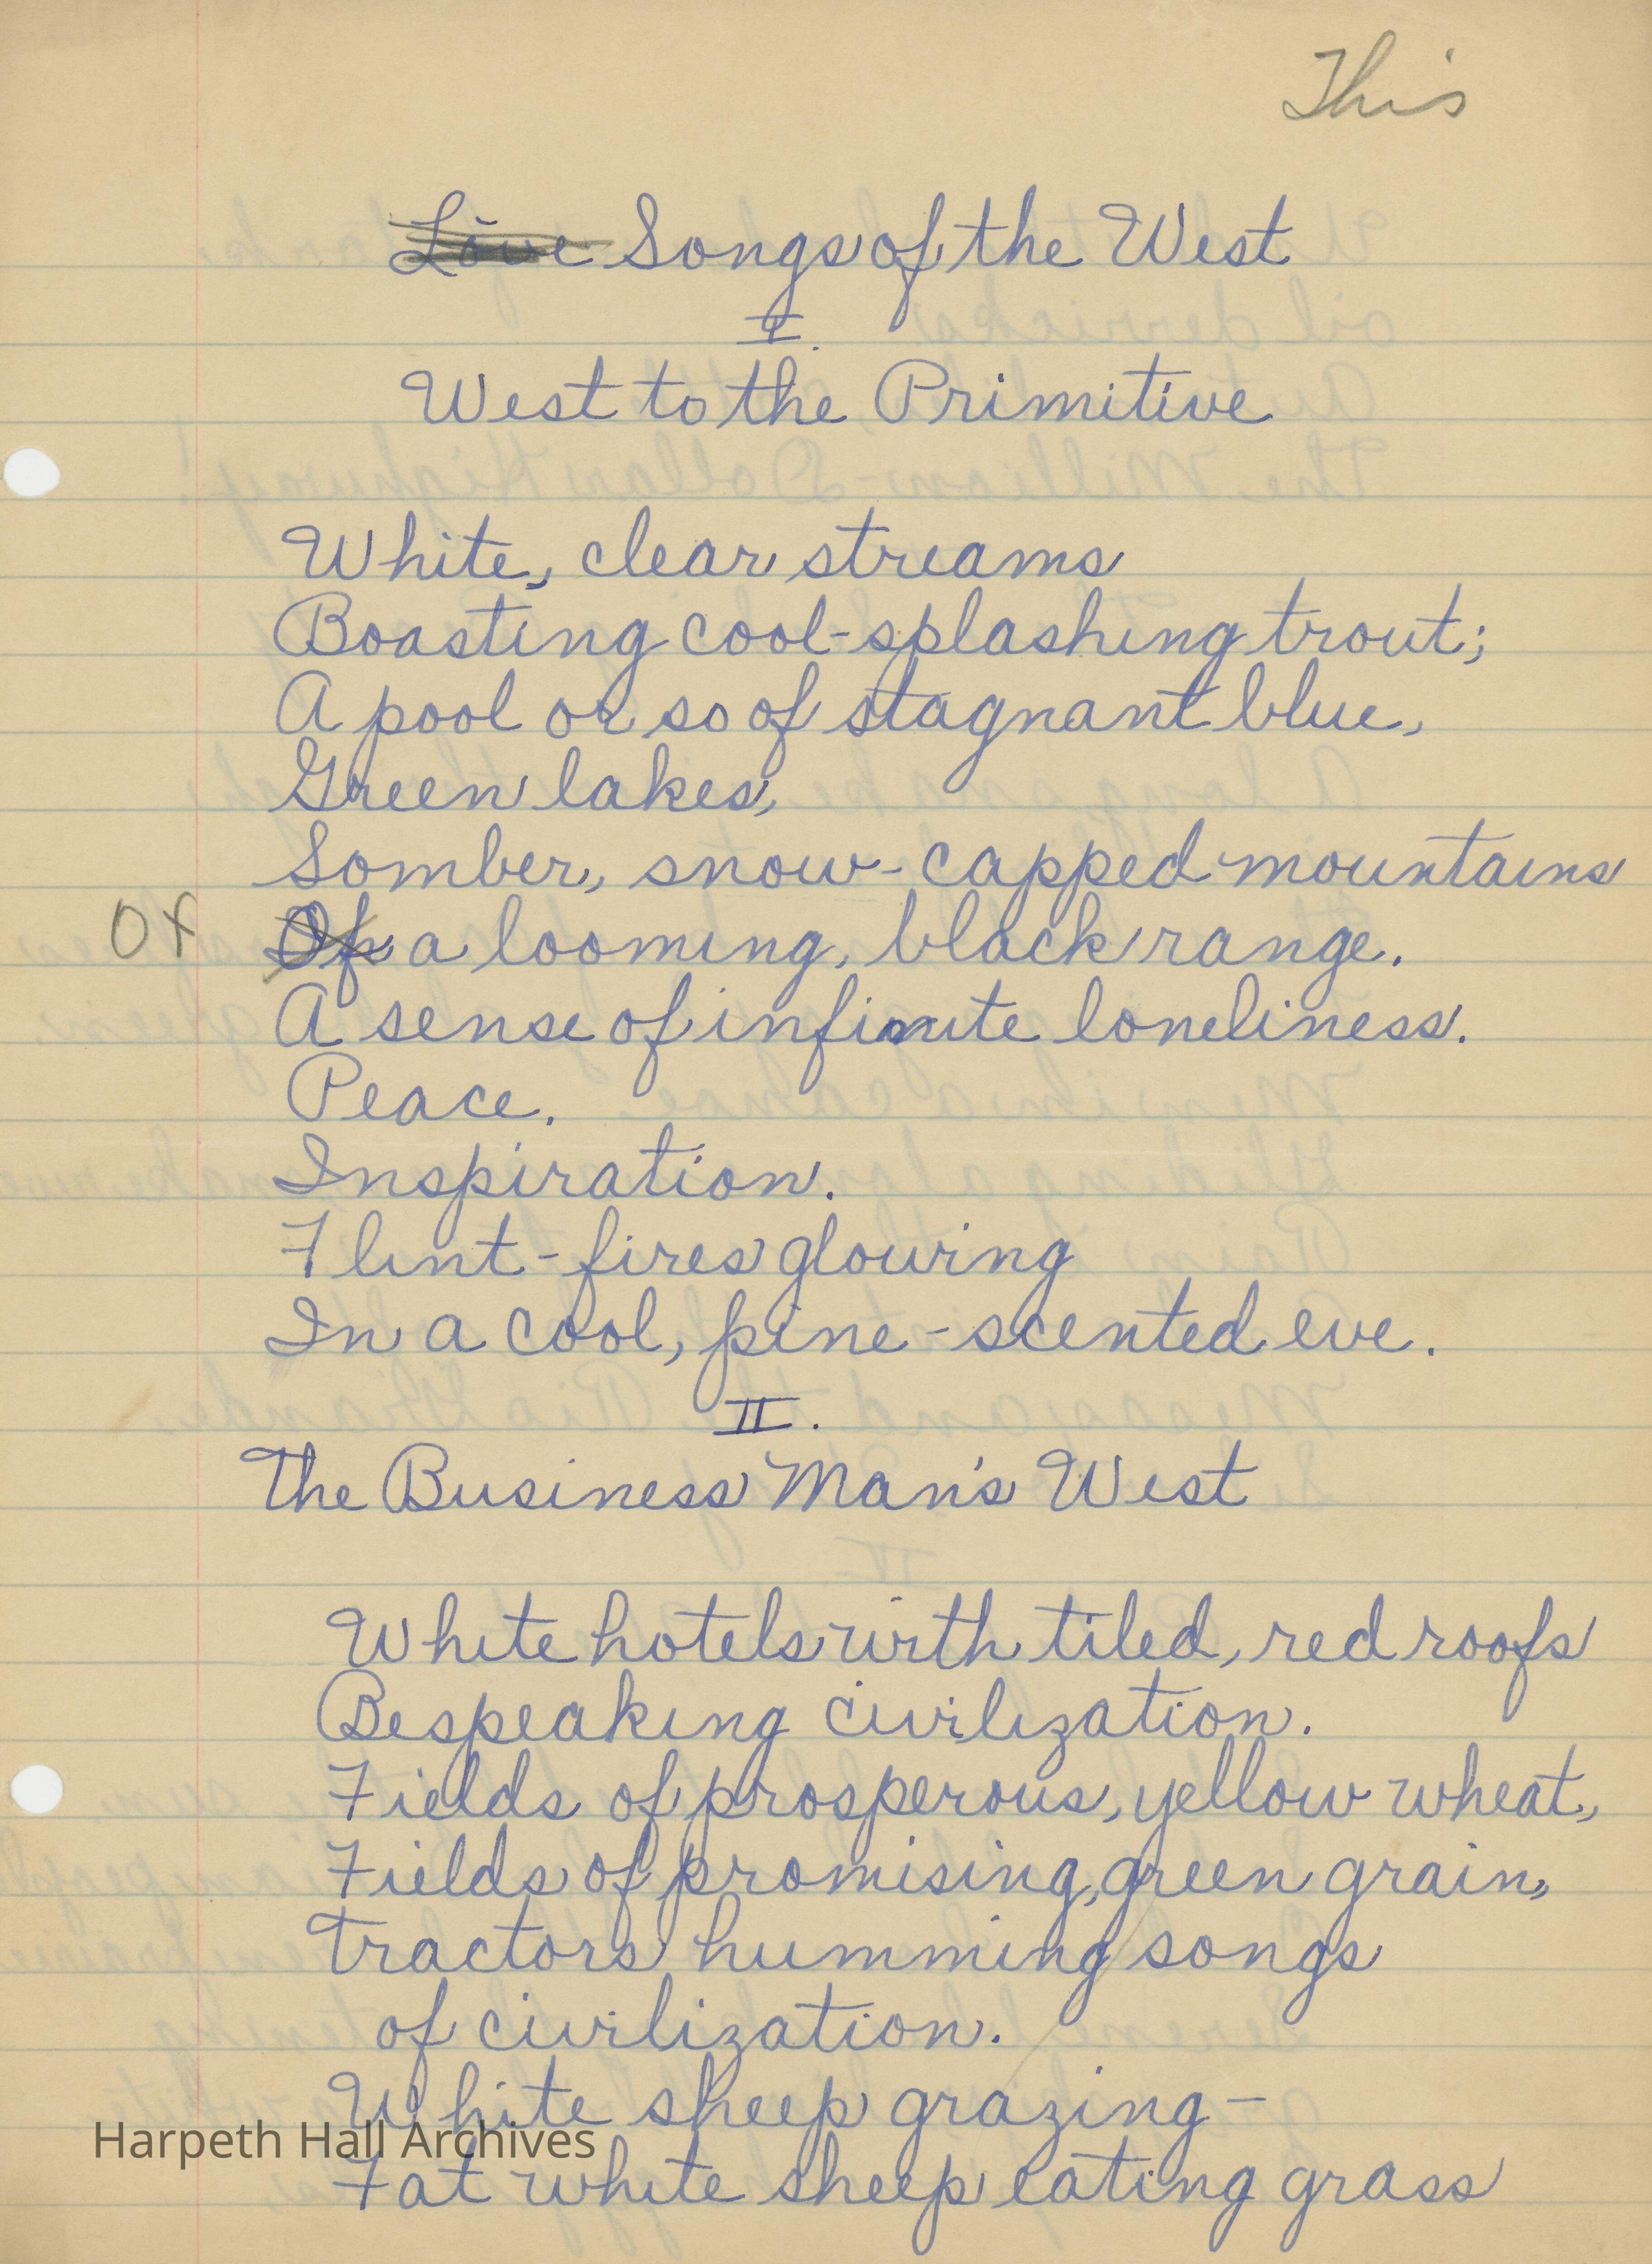 This
Love Songs of the West
I.
West to the Primitive
White, clear streams
Boasting cool-splashing trout;
A pool or so of stagnant blue,
Green lakes,
Somber, snow-capped mountains
Or Of a looming, black range.
A sense of infinite loneliness.
Peace.
Inspiration.
Flint-fires glowing
In a cool, pine-scented eve.
II.
The Business Man's West
White hotels with tiled, red roofs
Bespeaking civilization.
Fields of prosperous, yellow wheat,
Fields of promising, green grain,
Tractors humming songs
of civilization.
White sheep grazing-
Harpeth Hall Archives
Fat white sheep eating grass